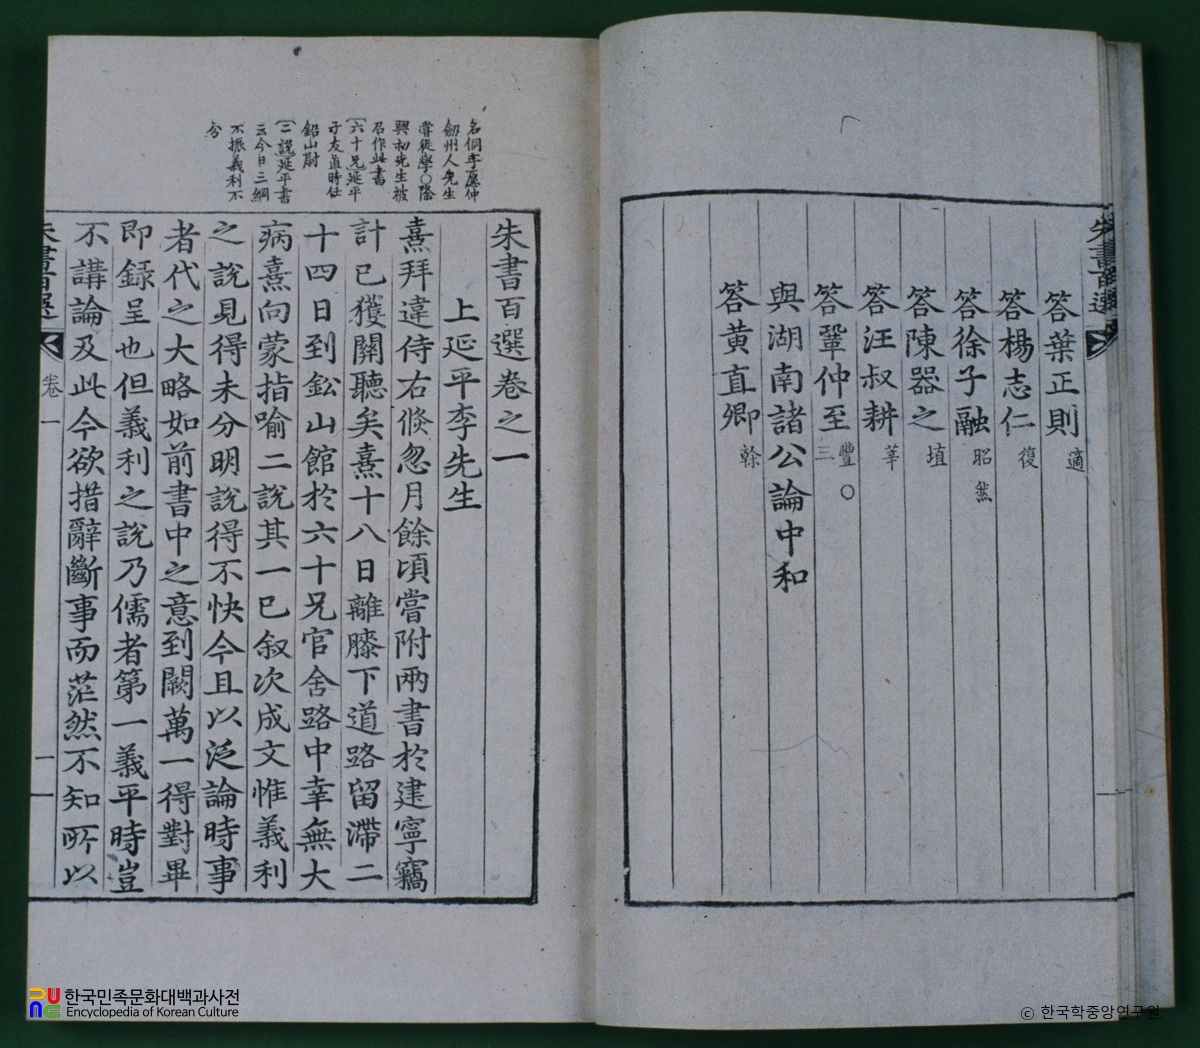 朱書百選
答葉正則適
答楊志仁復
答徐子融昭然
答陳器之埴
答汪叔耕莘
答鞏仲至豐○三
與湖南諸公論中和
答黄直卿榦
名侗字愿仲
劒州人先生
嘗從學○隆
興初先生被
召作此書
(六十兄延平
子友直時任
鉛山尉
(二說延平書
云今日三綱
不振義利不
分
朱書百選卷之一
上延平李先生
熹拜違侍右倏忽月餘頃嘗附兩書於建寧竊
計已獲關聽矣熹十八日離膝下道路留滯二
十四日到鈆山館於六十兄官舍路中幸無大
病熹向蒙指喻二說其一已叙次成文惟義利
之說見得未分明說得不快今且以泛論時事
者代之大略如前書中之意到闕萬一得對畢
即録呈也但義利之說乃儒者第一義平時豈
不講論及此今欲措辭斷事而茫然不知所以
朱書百選
卷一
一
한국민족문화대백과사전
Encyclopedia of Korean Culture
© 한국학중앙연구원